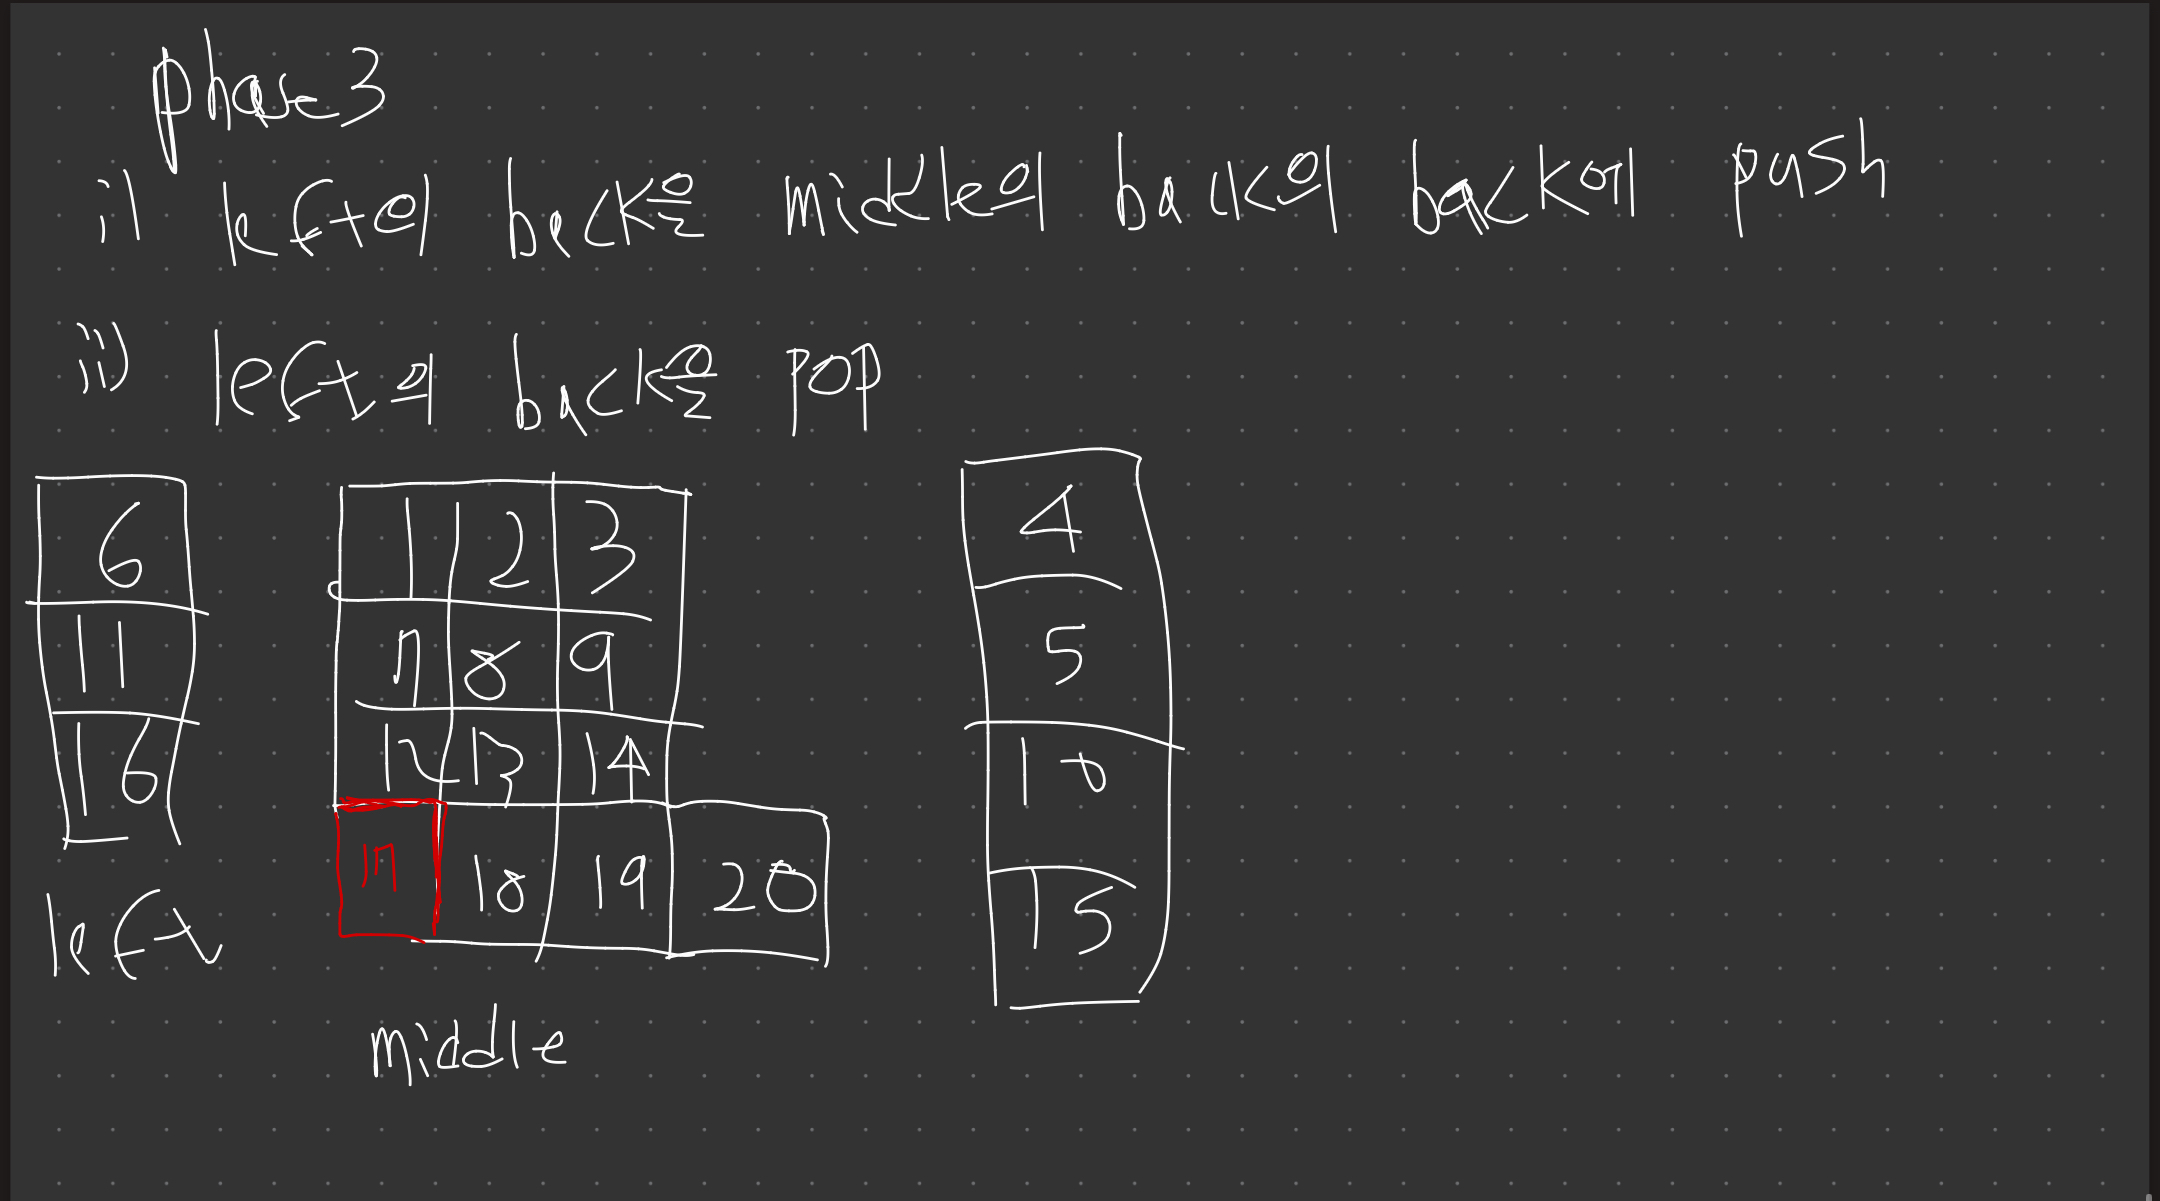 phase3
i) left의 back을 middle의 back의 back에 push
ii) left의 back을 pop
6 1 2 3 4
11 7 8 9 5
16 12 13 14 10
17 18 19 20 15
left
middle